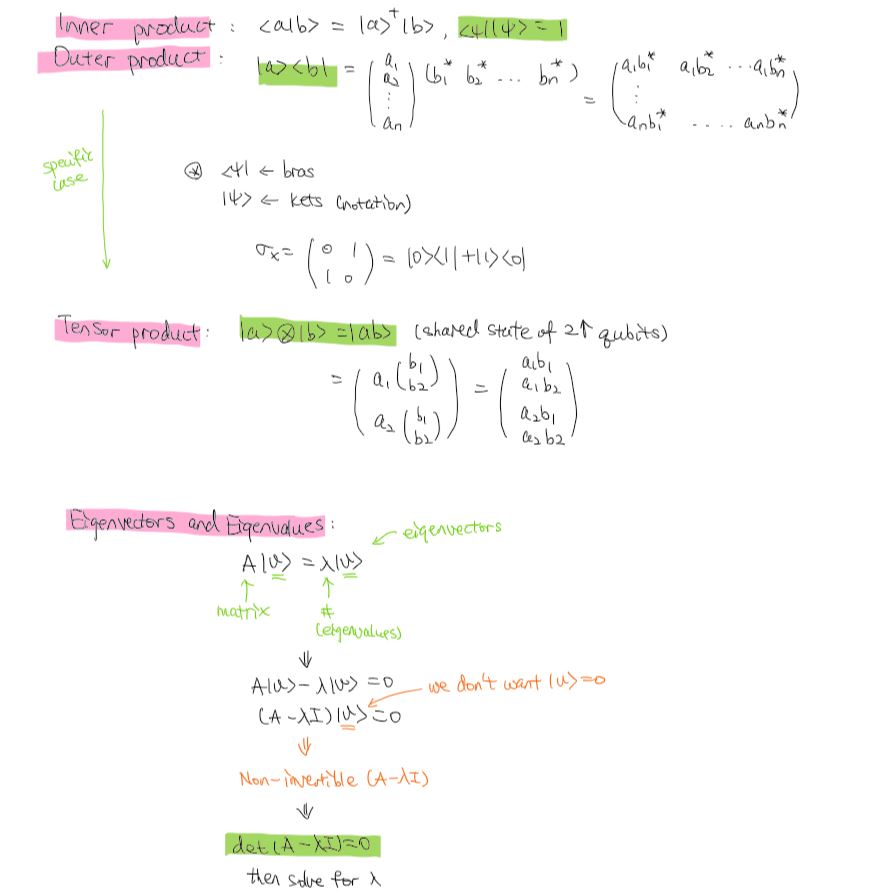 Inner product : <a|b> = |a>† |b>, <ψ||ψ> = 1
Outer product : |a><b| = (a₁ a₂ ⋮ aₙ) (b₁* b₂* ... bₙ*) = (a₁b₁* a₁b₂* ... a₁bₙ* ⋮ aₙb₁* .... aₙbₙ*)
specific case
⊛ <ψ| ← bras
|ψ> ← kets (notation)
σₓ = (0 1 1 0) = |0><1| + |1><0|
Tensor product : |a> ⊗ |b> = |ab> (shared state of 2↑ qubits)
= (a₁ (b₁ b₂) a₂ (b₁ b₂)) = (a₁b₁ a₁b₂ a₂b₁ a₂b₂)
Eigenvectors and Eigenvalues :
← eigenvectors
A|v> = λ|v>
↑ ↑
matrix #
(eigenvalues)
⇓
A|v> - λ|v> = 0
we don't want |v> = 0
(A - λI)|v> = 0
⇓
Non-invertible (A-λI)
⇓
det(A-λI)=0
then solve for λ